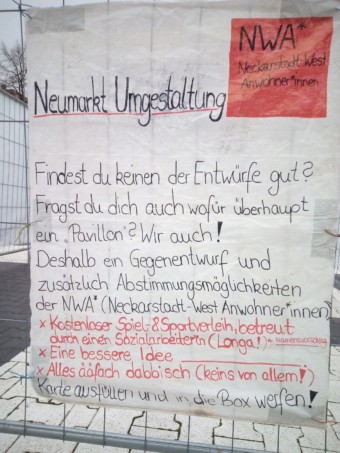 NWA*
Neckarstadt-West
Anwohner*innen
Neumarkt Umgestaltung
Findest du keinen der Entwürfe gut?
Fragst du dich auch wofür überhaupt
ein „Pavillon“? Wir auch!
Deshalb ein Gegenentwurf und
zusätzlich Abstimmungsmöglichkeiten
der NWA* (Neckarstadt-West Anwohner*innen)
x Kostenloser Spiel- & Sportverleih, betreut
durch einen Sozialarbeiterin (Longa!)
x Eine bessere Idee
x Alles ääfach dabbisch (keins von allem!)
Karte ausfüllen und in die Box werfen!